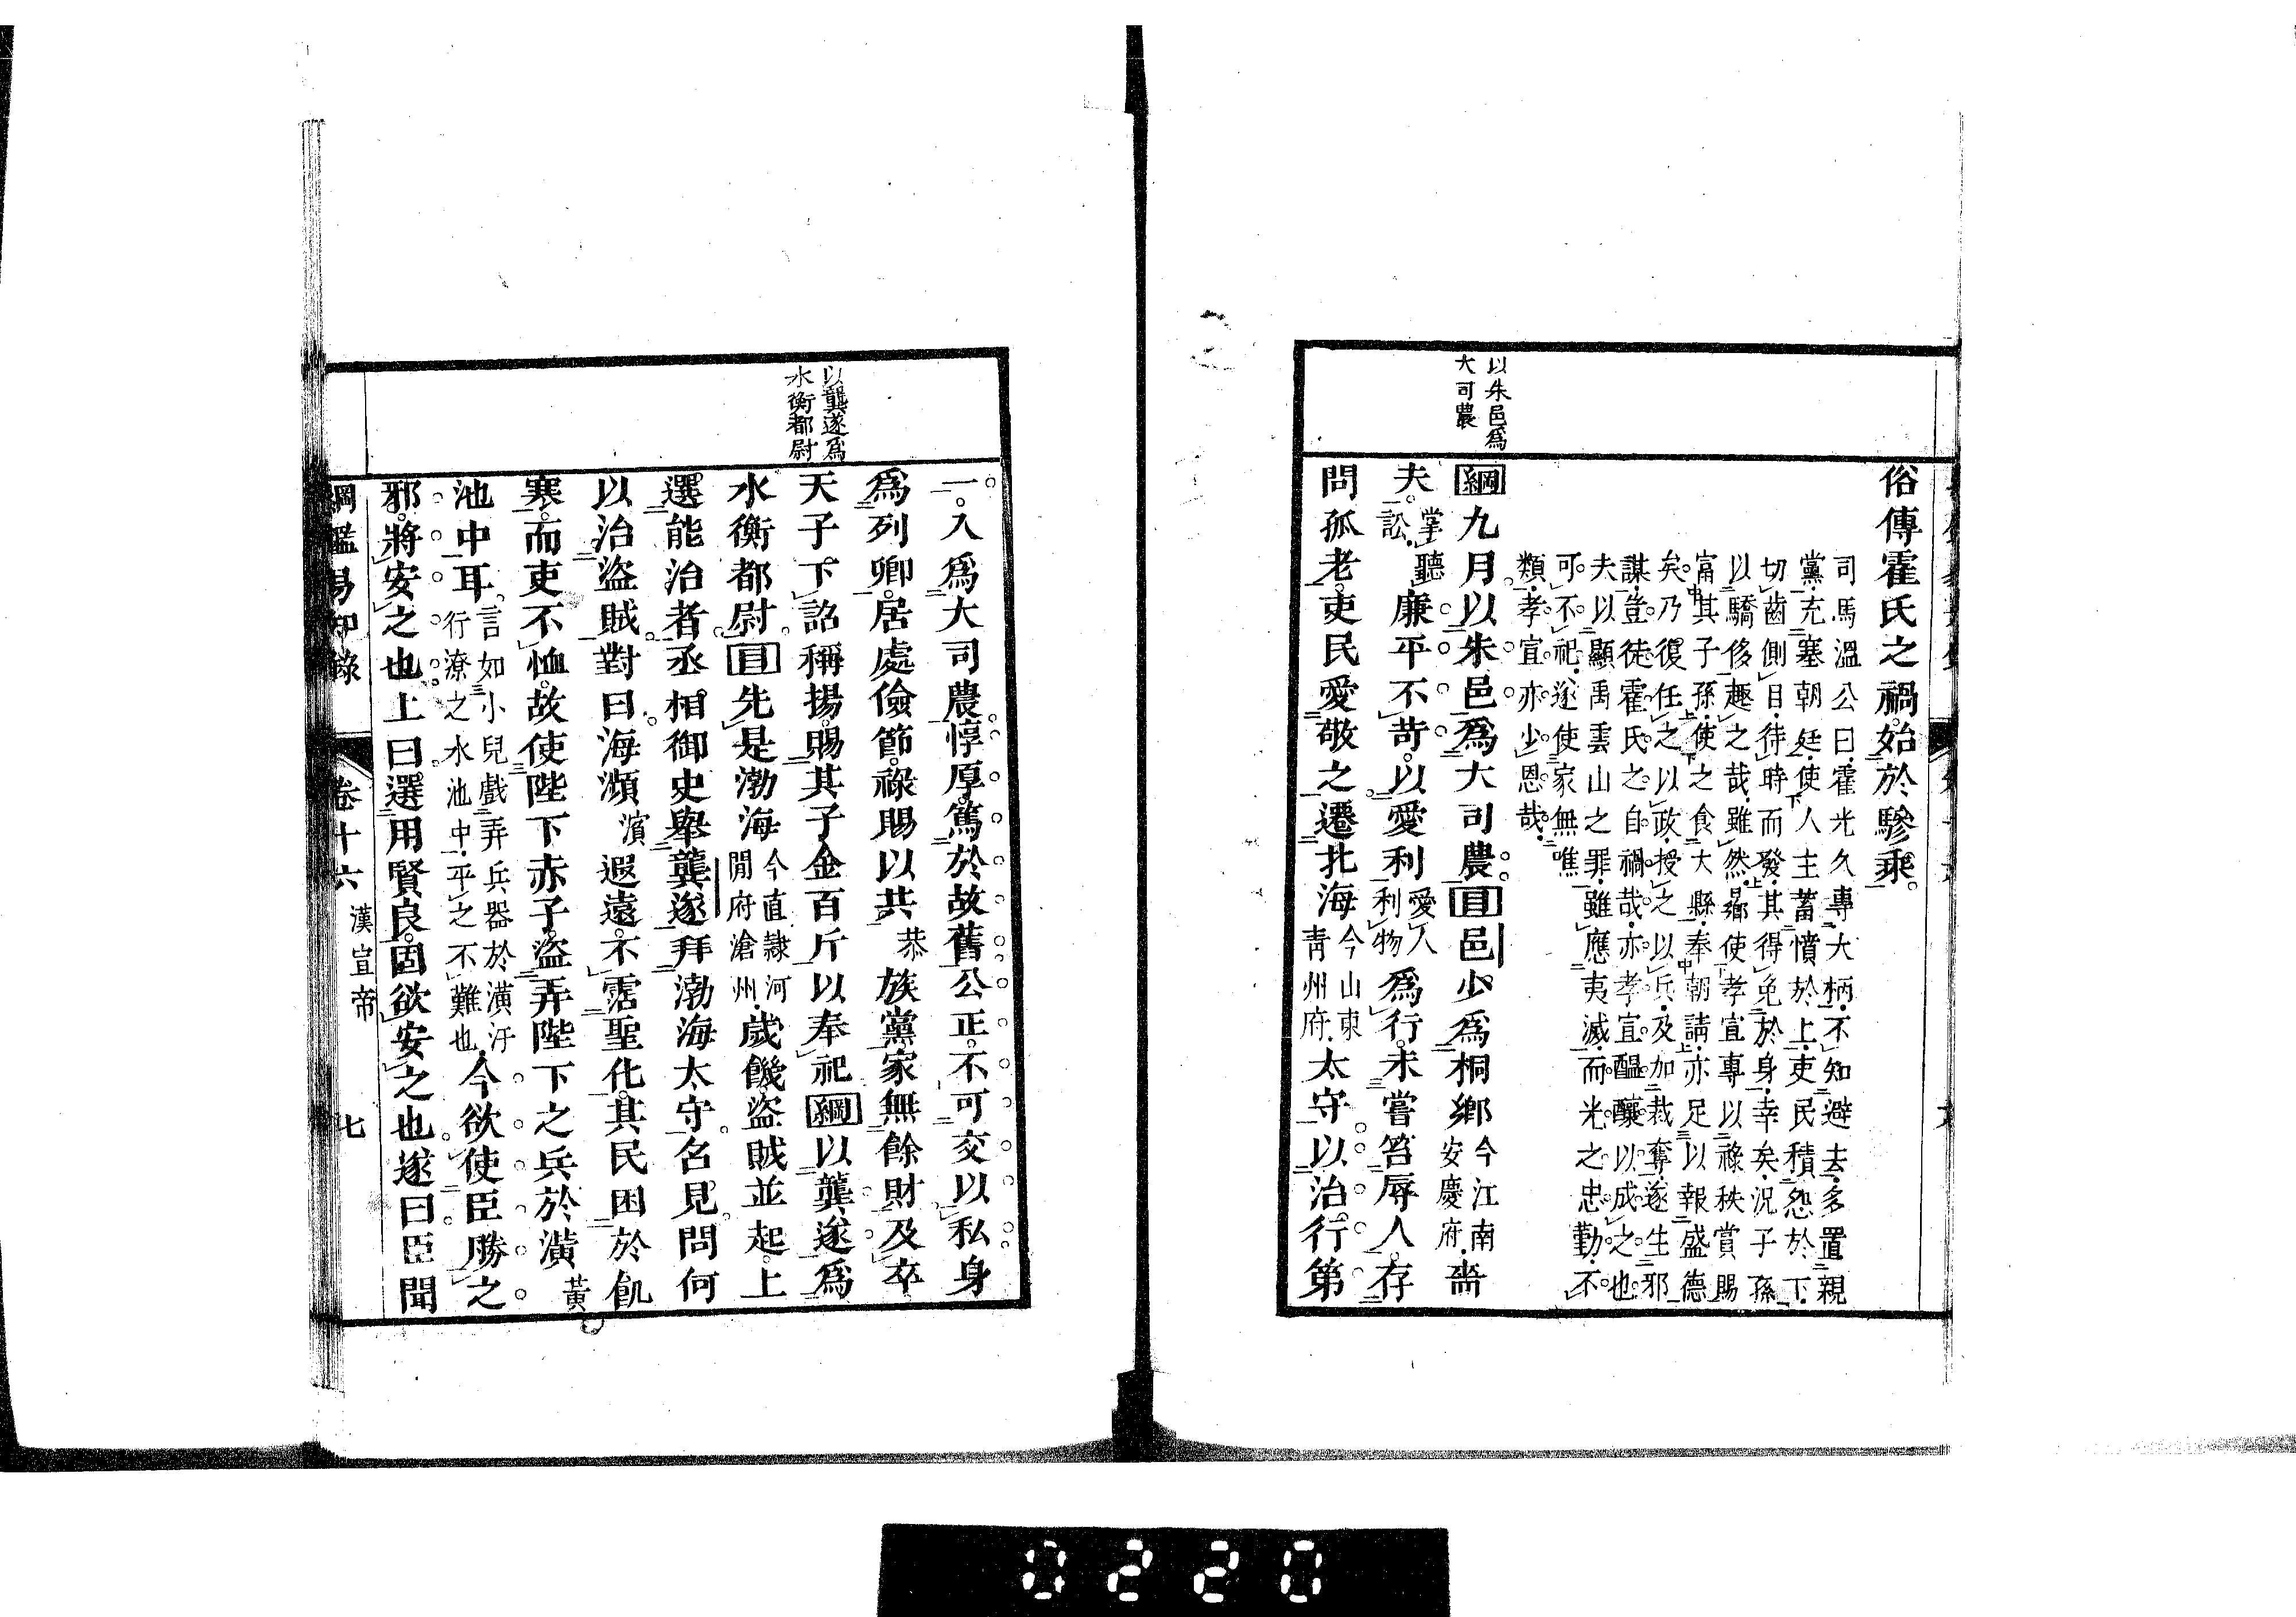 俗傳霍氏之禍始於驂乘。
司馬溫公曰霍光久專大柄不知避去多置親
黨充塞朝廷使人主蓄憤於上吏民積怨於下
切齒側目待時而發其得免於身幸矣況子孫
以驕侈趣之哉雖然曏使孝宣專以祿秩賞賜
富其子孫使之食大縣奉朝請亦足以報盛德
矣乃復任之以政授之以兵及加裁奪遂生邪
謀豈徒霍氏之自禍哉亦孝宣醞釀以成之也
夫以顯禹雲山之罪雖應夷滅而光之忠勤不
可不祀遂使家無噍
類孝宣亦少恩哉
以朱邑爲
大司農
綱九月以朱邑爲大司農目邑少爲桐鄉今江南安慶府嗇
夫掌聽訟廉平不苛以愛利愛人利物爲行未嘗笞辱人存
問孤老吏民愛敬之遷北海今山東青州府太守以治行第
一入爲大司農惇厚篤於故舊公正不可交以私身
爲列卿居處儉節祿賜以共恭族黨家無餘財及卒
以龔遂爲
水衡都尉
天子下詔稱揚賜其子金百斤以奉祀綱以龔遂爲
水衡都尉目先是渤海今直隸河閒府滄州歲饑盜賊並起上
選能治者丞相御史舉龔遂拜渤海太守名見問何
以治盜賊對曰海瀕濱遐遠不霑聖化其民困於飢
寒而吏不恤故使陛下赤子盜弄陛下之兵於潢黃
池中耳言如小兒戲弄兵器於潢汙行潦之水池中平之不難也今欲使臣勝之
邪將安之也上曰選用賢良固欲安之也遂曰臣聞
綱鑑易知錄 卷十六 漢宣帝 七
0220